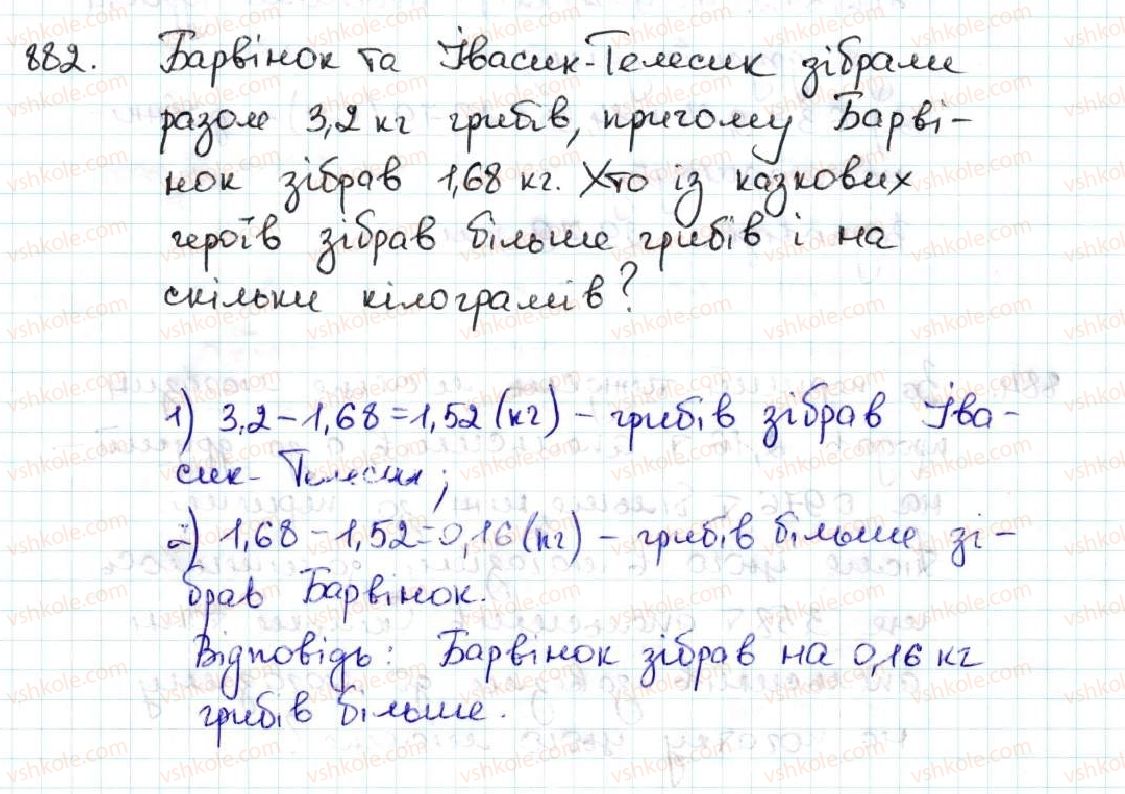 882. Барвінок та Івасик-Телесик зібрали
разом 3,2 кг грибів, причому Барві-
нок зібрав 1,68 кг. Хто із казкових
героїв зібрав більше грибів і на
скільки кілограмів?
1) 3,2 – 1,68 = 1,52 (кг) – грибів зібрав Іва-
сик-Телесик;
2) 1,68 – 1,52 = 0,16 (кг) – грибів більше зі-
брав Барвінок.
Відповідь: Барвінок зібрав на 0,16 кг
грибів більше.